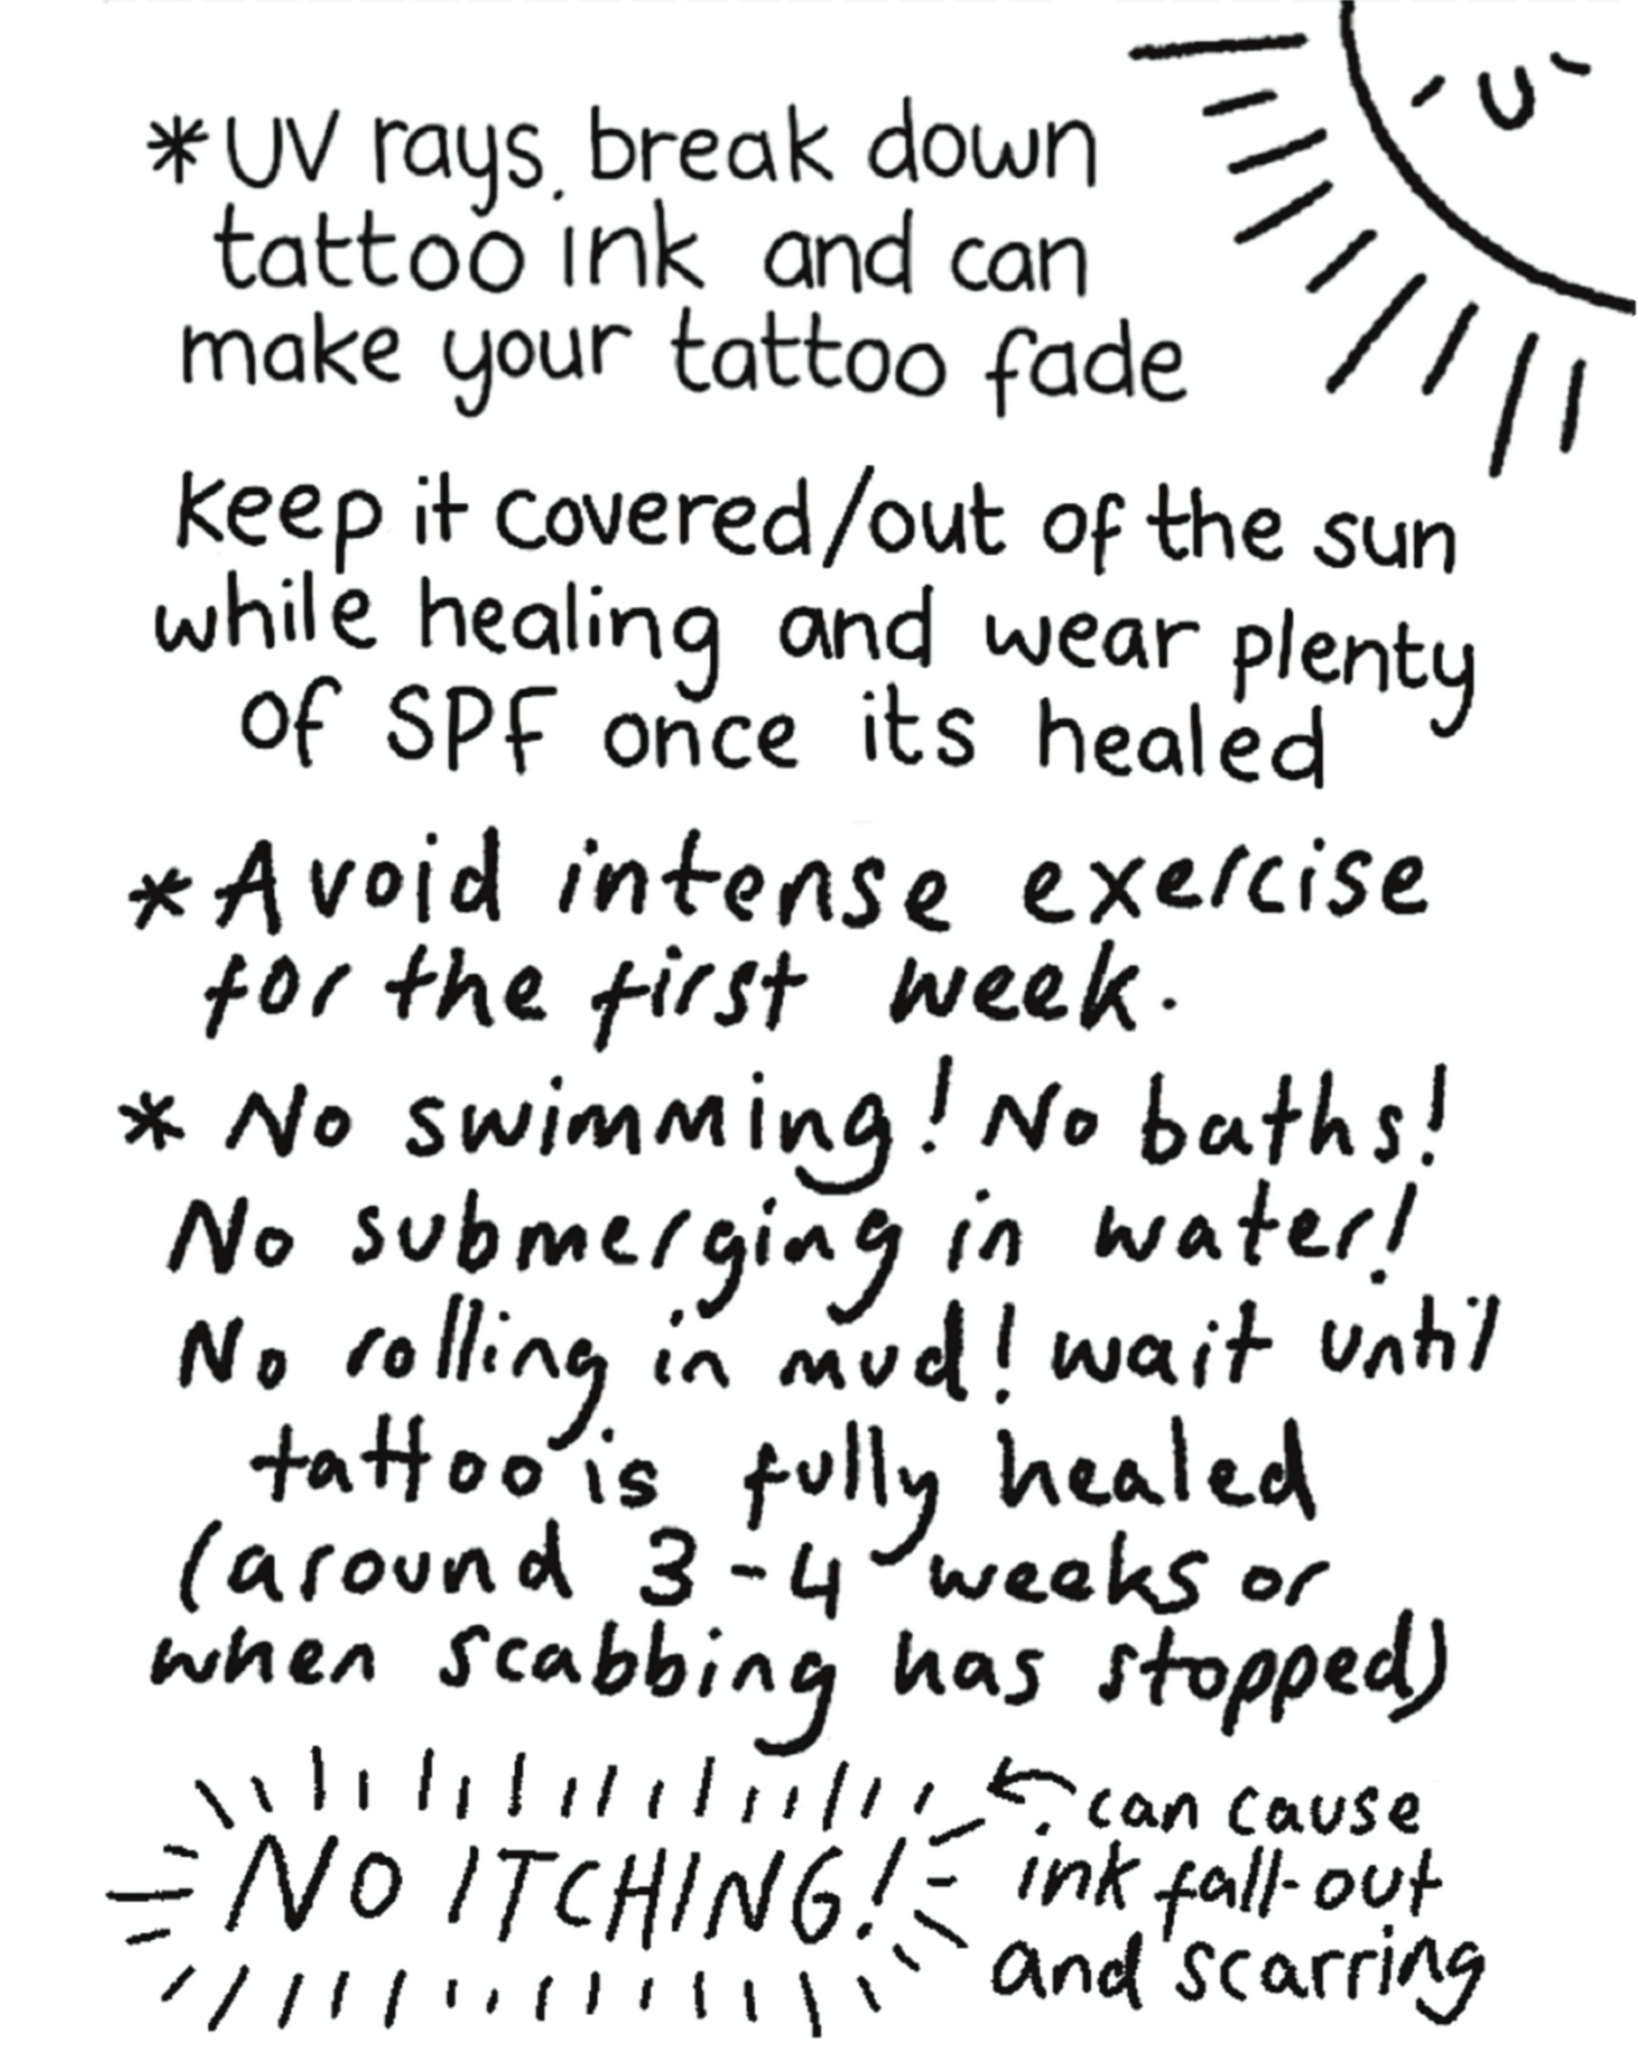 *UV rays break down
tattoo ink and can
make your tattoo fade
keep it covered/out of the sun
while healing and wear plenty
of SPF once its healed
* Avoid intense exercise
for the first week.
* No swimming! No baths!
No submerging in water!
No rolling in mud! wait until
tattoo is fully healed
(around 3-4 weeks or
when scabbing has stopped)
NO ITCHING!
can cause
ink fall-out
and scarring